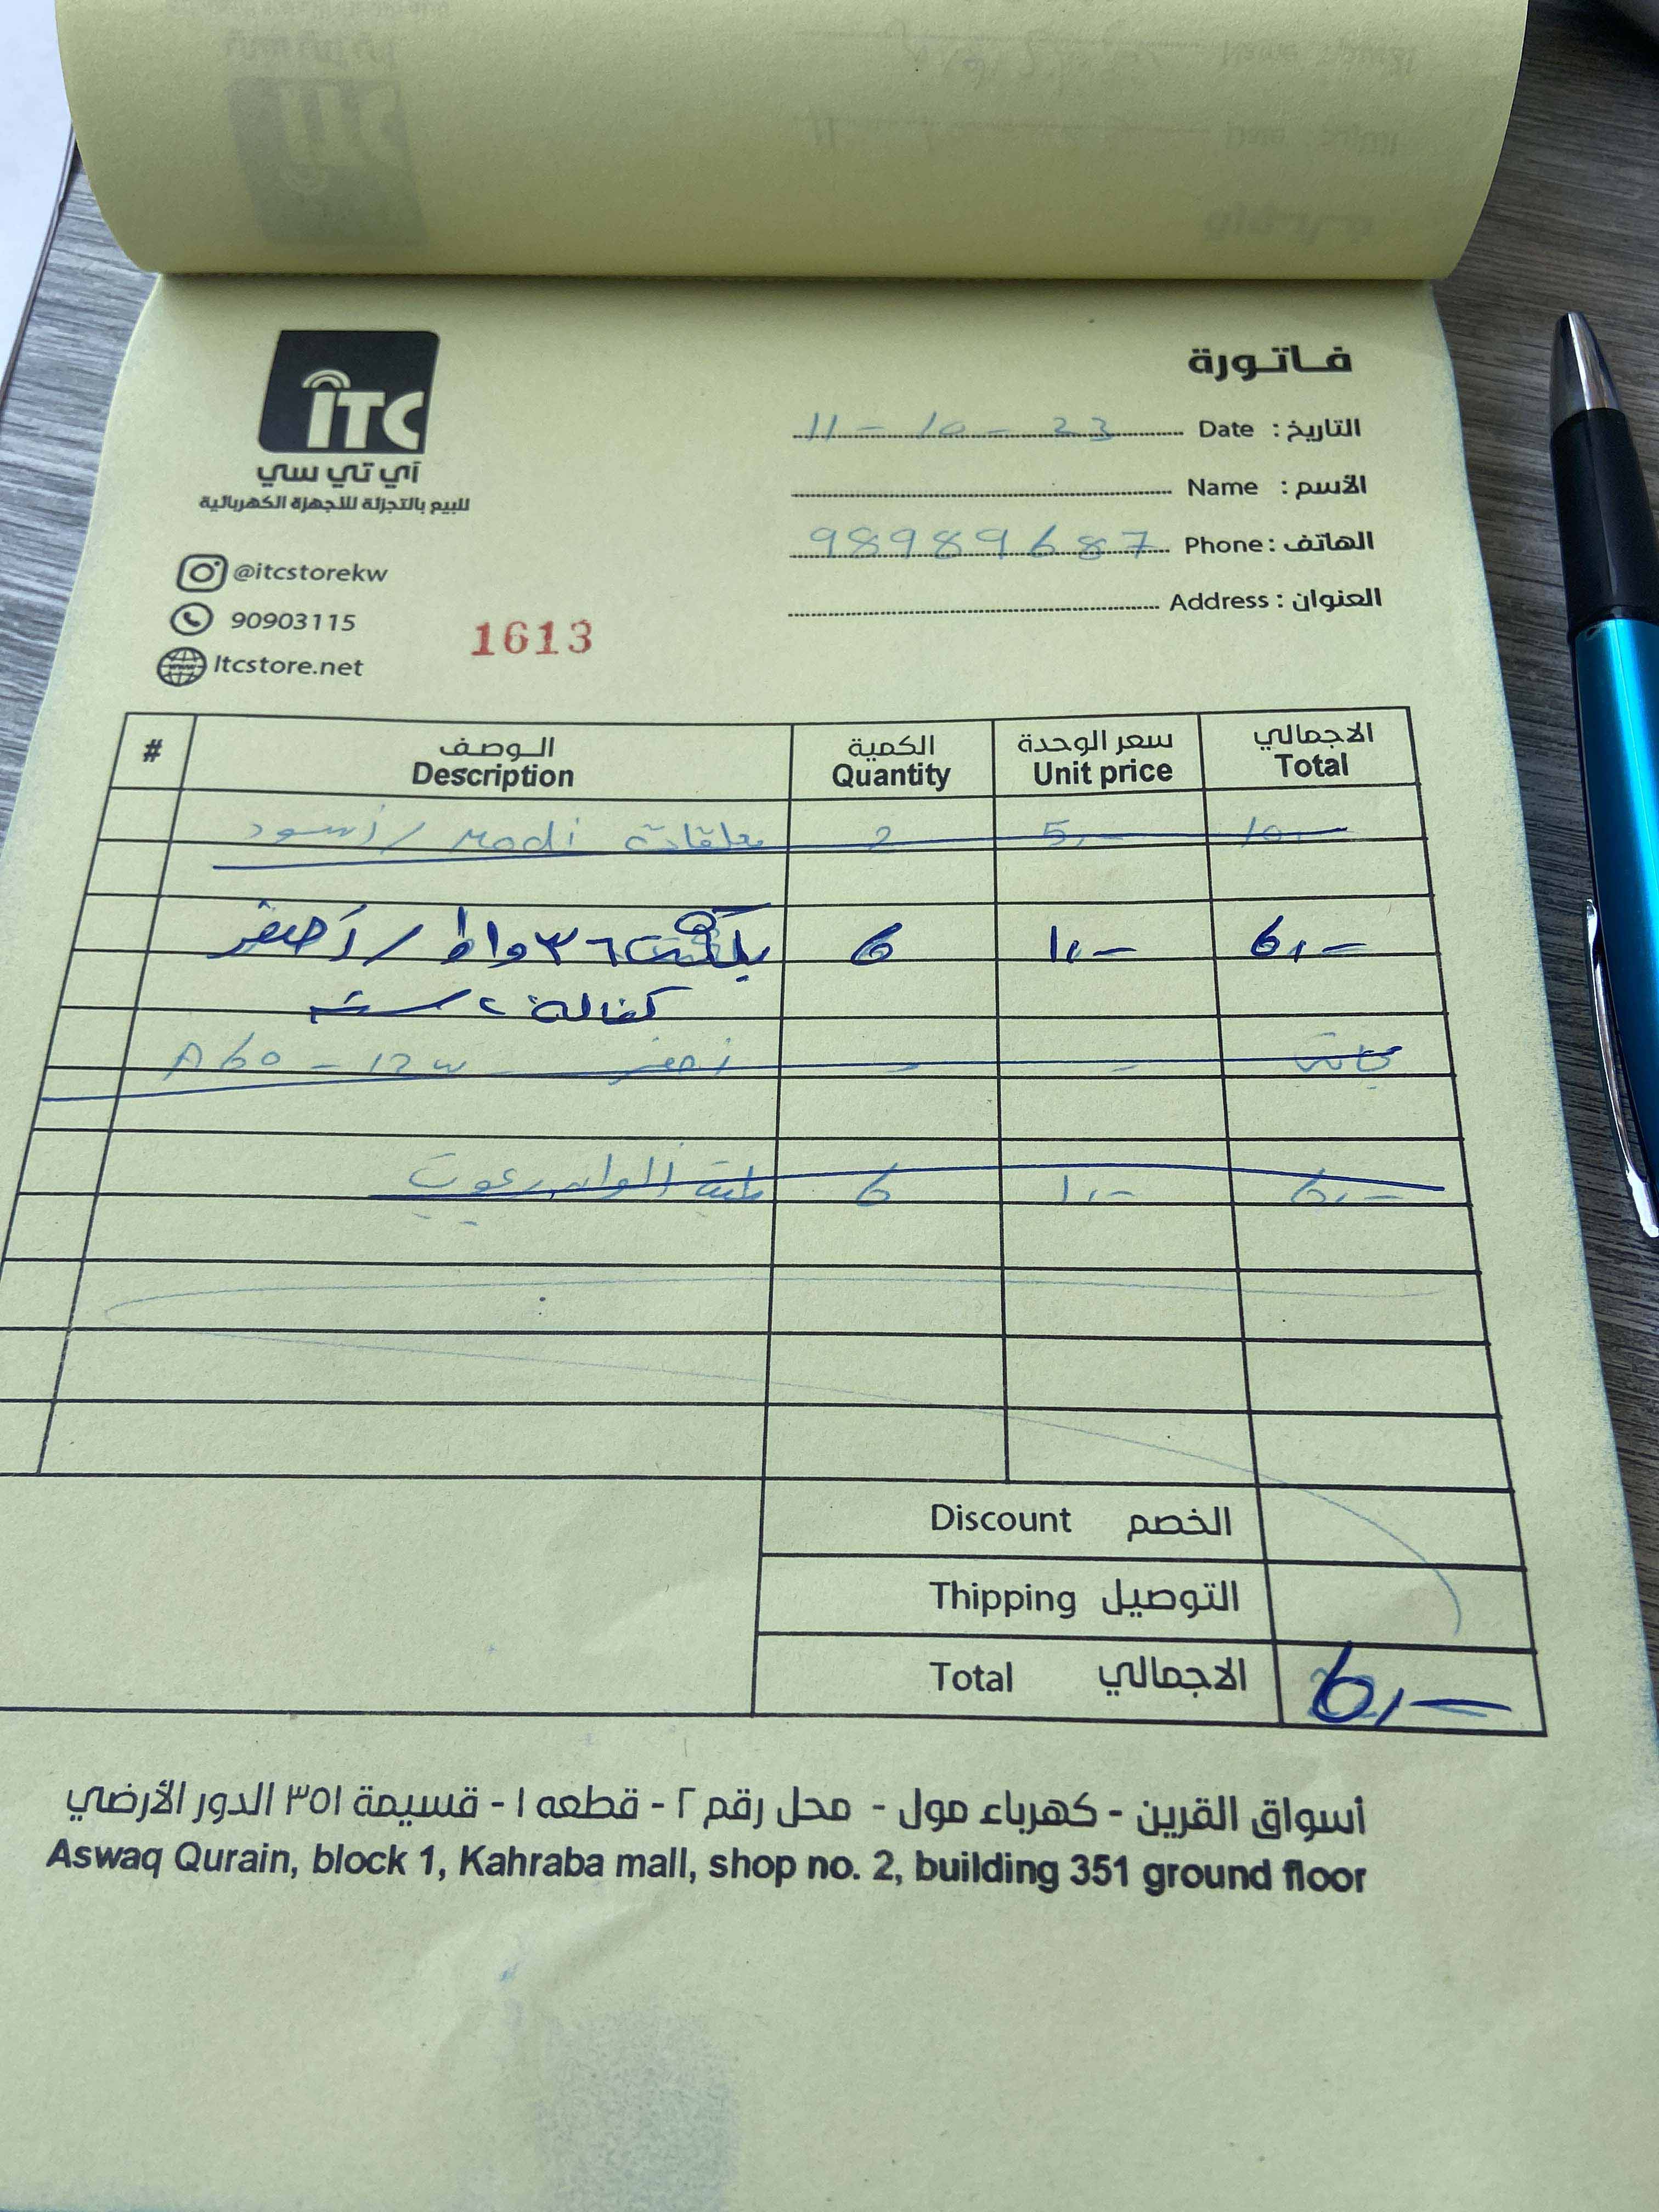 ITC
آي تي سي
للبيع بالتجزئة للأجهزة الكهربائية
@itcstorekw
90903115
Itcstore.net
1613
فاتورة
التاريخ : Date 11 - 10 - 23
الأسم : Name
الهاتف : Phone 98989687
العنوان : Address
# الوصف الكمية سعر الوحدة الاجمالي
Description Quantity Unit price Total
معلقات Madi / أسود 2 5,- 10,-
٣٦ واط / أصفر 6 1,- 6,-
كفالة ٢ سنة
A60 - 12w أصفر
6 1,- 6,-
Discount الخصم
Thipping التوصيل
Total الاجمالي 6,-
أسواق القرين - كهرباء مول - محل رقم ٢ - قطعه ١ - قسيمة ٣٥١ الدور الأرضي
Aswaq Qurain, block 1, Kahraba mall, shop no. 2, building 351 ground floor